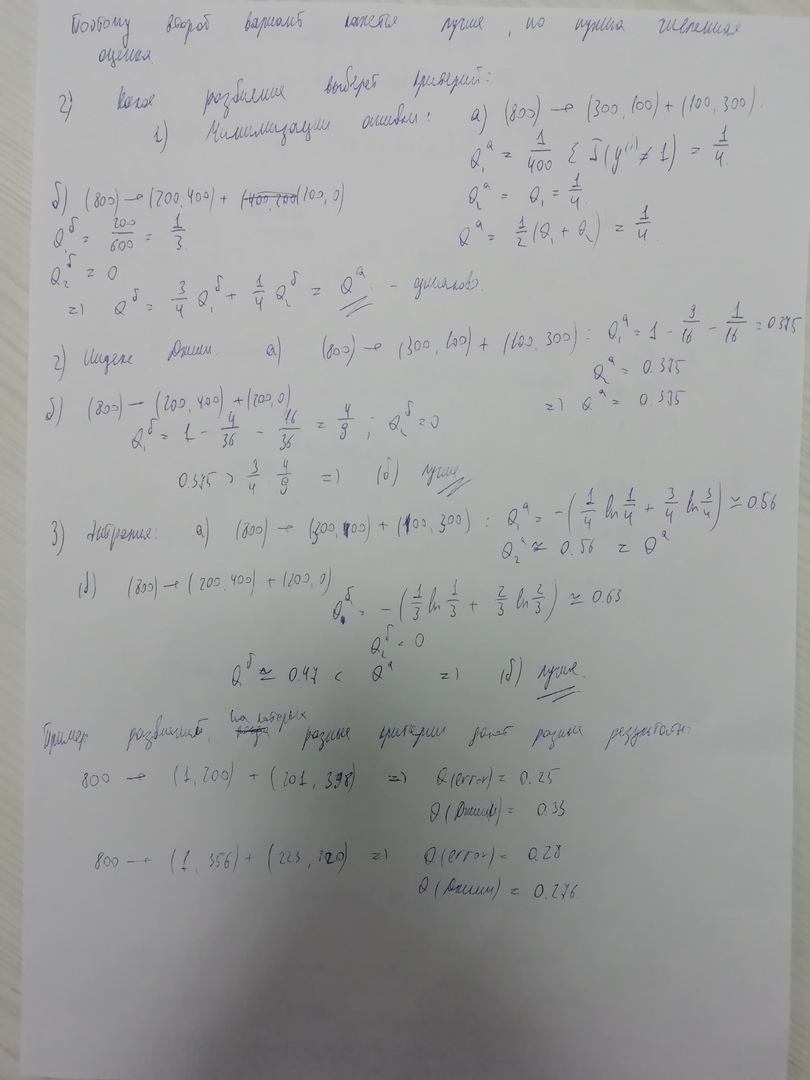 Поэтому второй вариант кажется лучше, но нужна численная
оценка.
2) Какое разбиение выберет критерий:
1) Минимизации ошибки: а) (800) → (300, 100) + (100, 300).
Q₁ᵃ = 1/400 Σ I(y⁽ⁱ⁾ ≠ 1) = 1/4.
б) (800) → (200, 400) + (200, 0)
Q₂ᵃ = Q₁ = 1/4.
Q₁ᵟ = 200/600 = 1/3.
Qᵃ = 1/2 (Q₁ + Q₂) = 1/4.
Q₂ᵟ = 0
=> Qᵟ = 3/4 Q₁ᵟ + 1/4 Q₂ᵟ = Qᵃ - одинаково.
2) Индекс Джини. а) (800) → (300, 100) + (100, 300): Q₁ᵃ = 1 - 9/16 - 1/16 = 0.375
Q₂ᵃ = 0.375
б) (800) → (200, 400) + (200, 0) => Qᵃ = 0.375
Q₁ᵟ = 1 - 4/36 - 16/36 = 4/9; Q₂ᵟ = 0
0.375 > 3/4 · 4/9 => (б) лучше
3) Энтропия: а) (800) → (300, 100) + (100, 300): Q₁ᵃ = -(1/4 ln 1/4 + 3/4 ln 3/4) ≃ 0.56
Q₂ᵃ ≈ 0.56 = Qᵃ
(б) (800) → (200, 400) + (200, 0)
Q₁ᵟ = -(1/3 ln 1/3 + 2/3 ln 2/3) ≃ 0.63
Q₂ᵟ = 0
Qᵟ ≃ 0.47 < Qᵃ => (б) лучше.
Пример разбиений, на которых разные критерии дают разные результаты:
800 → (1, 200) + (201, 398) => Q(error) = 0.25
Q(Джини) = 0.33
800 → (1, 356) + (223, 220) => Q(error) = 0.28
Q(Джини) = 0.276